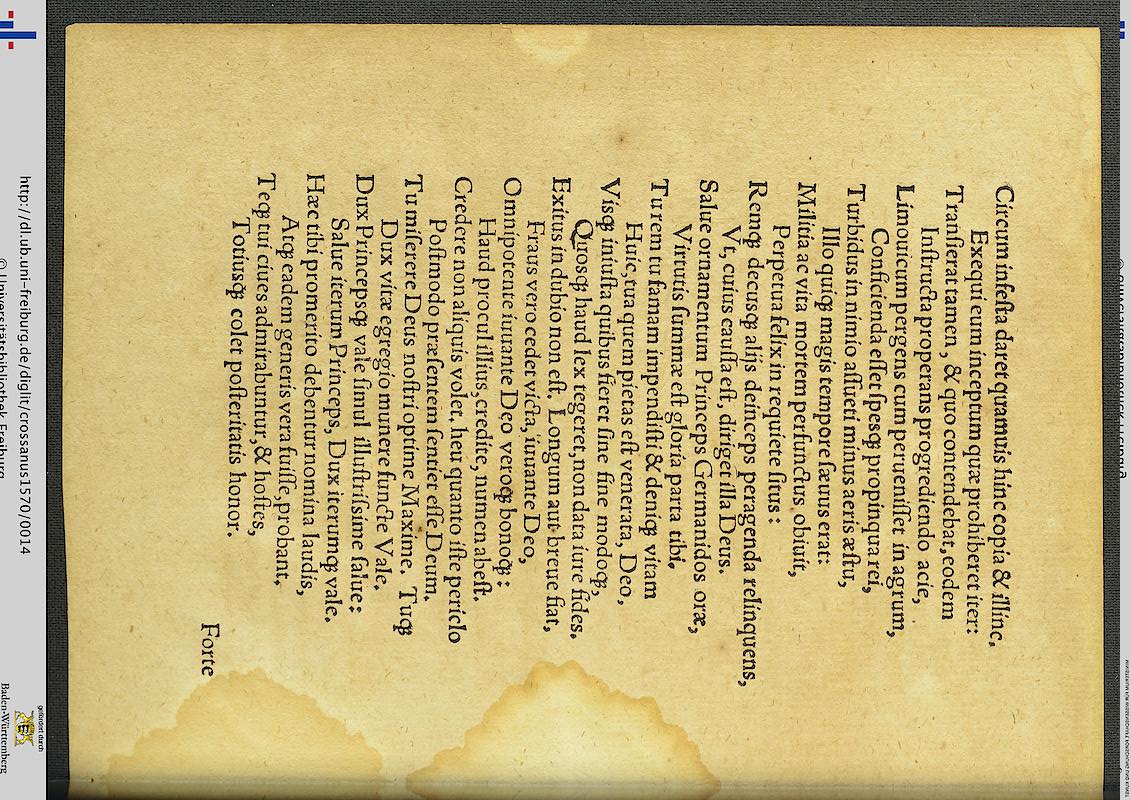 Circum infesta daret quamuis hinc copia & illinc,
Exequi cum inceptum quæ prohiberet iter:
Transierat tamen, & quo contendebat, eodem
Instructa properans progrediendo acie,
Limouicum pergens cum peruenisset in agrum,
Conficienda esset spesq́; propinqua rei,
Turbidus in nimio assueti minus aeris æstu,
Illo quiq́; magis tempore sæuus erat:
Militia ac vita mortem perfunctus obiuit,
Perpetua felix in requiete situs:
Remq́; decusq́; alijs deinceps peragenda relinquens,
Vt, cuius caussa est, dirigat illa Deus.
Salue ornamentum Princeps Germanidos oræ,
Virtutis summæ est gloria parta tibi.
Turem tu famam impendisti & deniq́; vitam
Huic, tua quem pietas est venerata, Deo,
Visq́; iniusta quibus fieret sine fine modoq́;,
Quosq́; haud lex tegeret, non data iure fides.
Exitus in dubio non est, Longum aut breue fiat,
Fraus vero cedet victa, iuuante Deo,
Omnipotente iuuante Deo veroq́; bonoq́;:
Haud procul illius, credite, numen abest.
Credere non aliquis volet, heu quanto iste periclo
Postmodo præsentem sentiet esse Deum.
Tu miserere Deus nostri optime Maxime. Tuq́;
Dux vitæ egregio munere functe Vale.
Dux Princepsq́; vale simul illustrissime salue:
Salue iterum Princeps, Dux iterumq́; vale.
Hæc tibi promerito debentur nomina laudis,
Atq́; eadem generis vera fuisse, probant.
Teq́; tui ciues admirabuntur, & hostes,
Totiusq́; colet posteritatis honor.
Forte
http://dl.ub.uni-freiburg.de/diglit/crossanus1570/0014
© Universitätsbibliothek Freiburg
gefördert durch
Baden-Württemberg